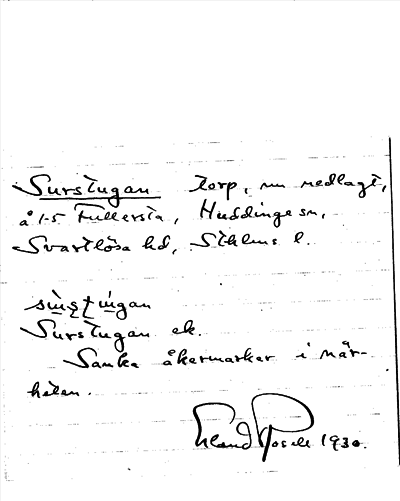 Surstugan torp, nu nedlagt,
å 1-5 Fullersta, Huddinge sn,
Svartlösa hd, Sthlms l.
Surstugan ek.
Sanka åkermarker i när-
heten.
Erland Rosell 1930.